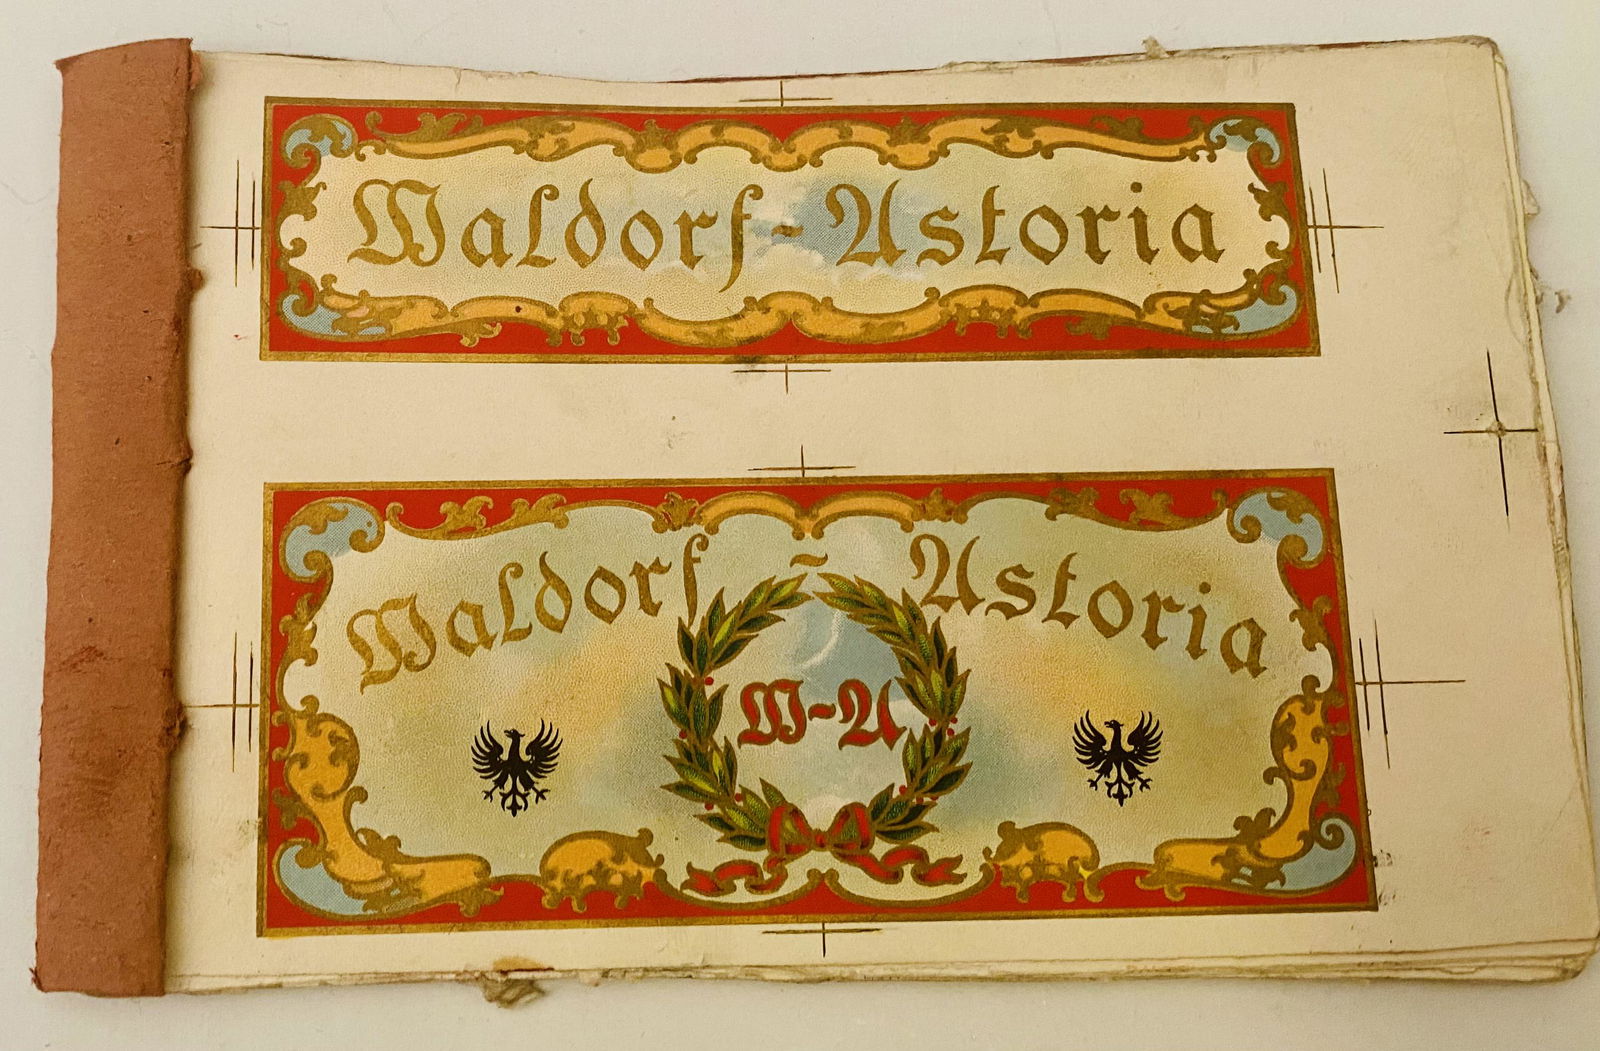 Waldorf-Astoria
Waldorf-Astoria
W-A